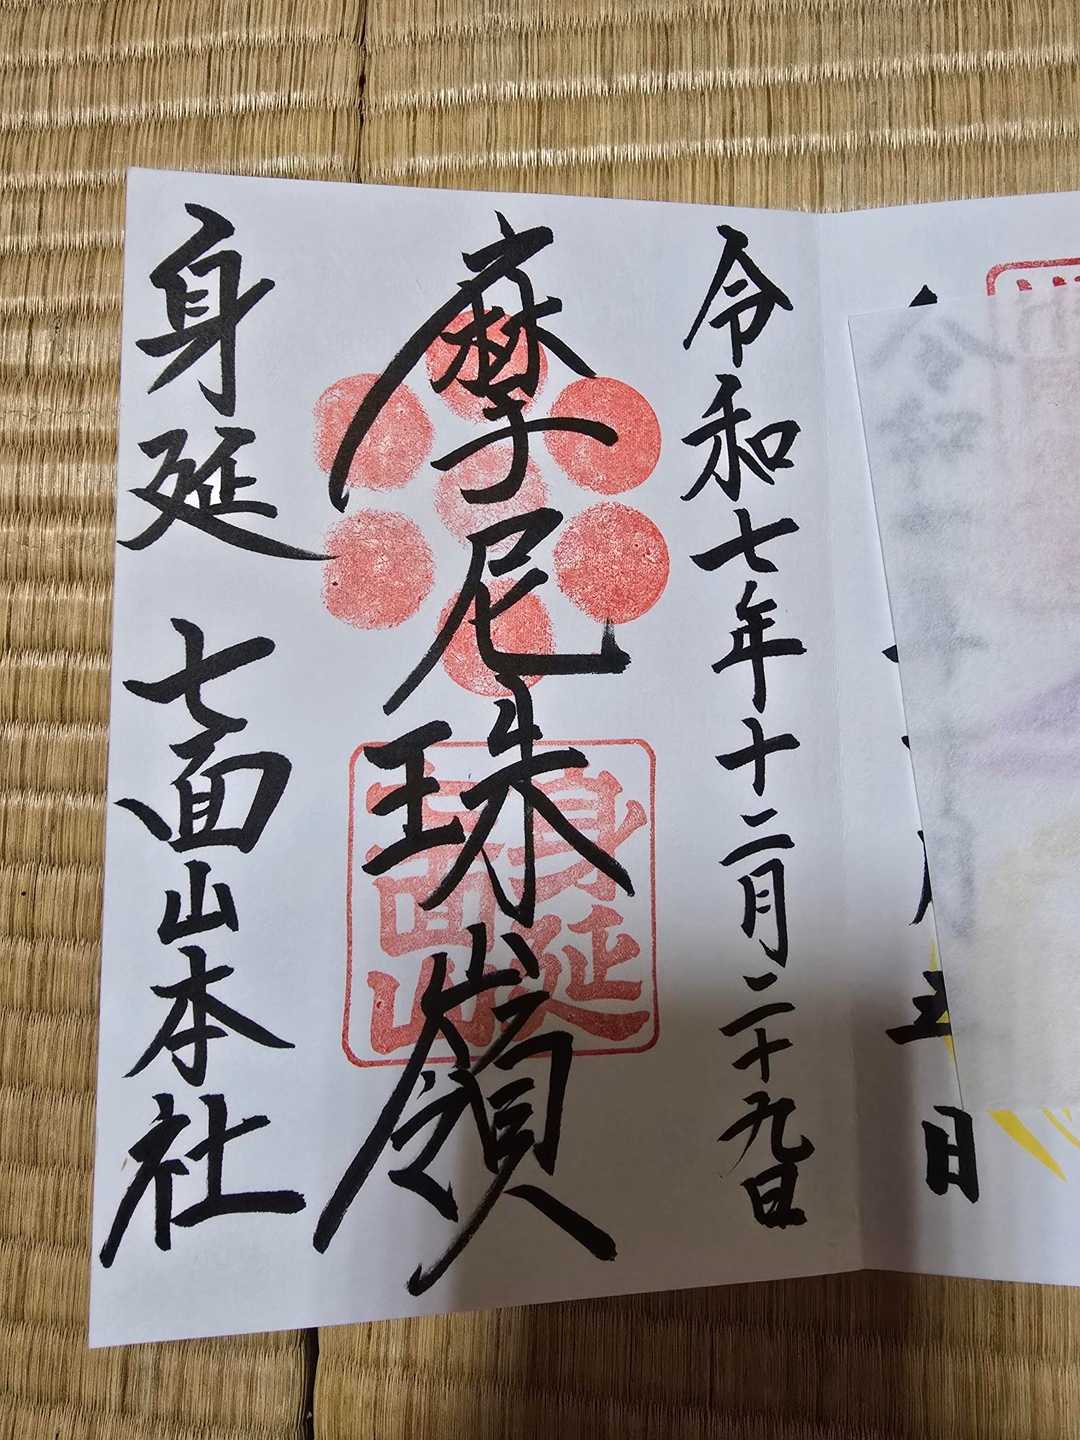 日
令和七年十二月二十九日
摩尼珠嶺
身延
七面山
身延 七面山本社